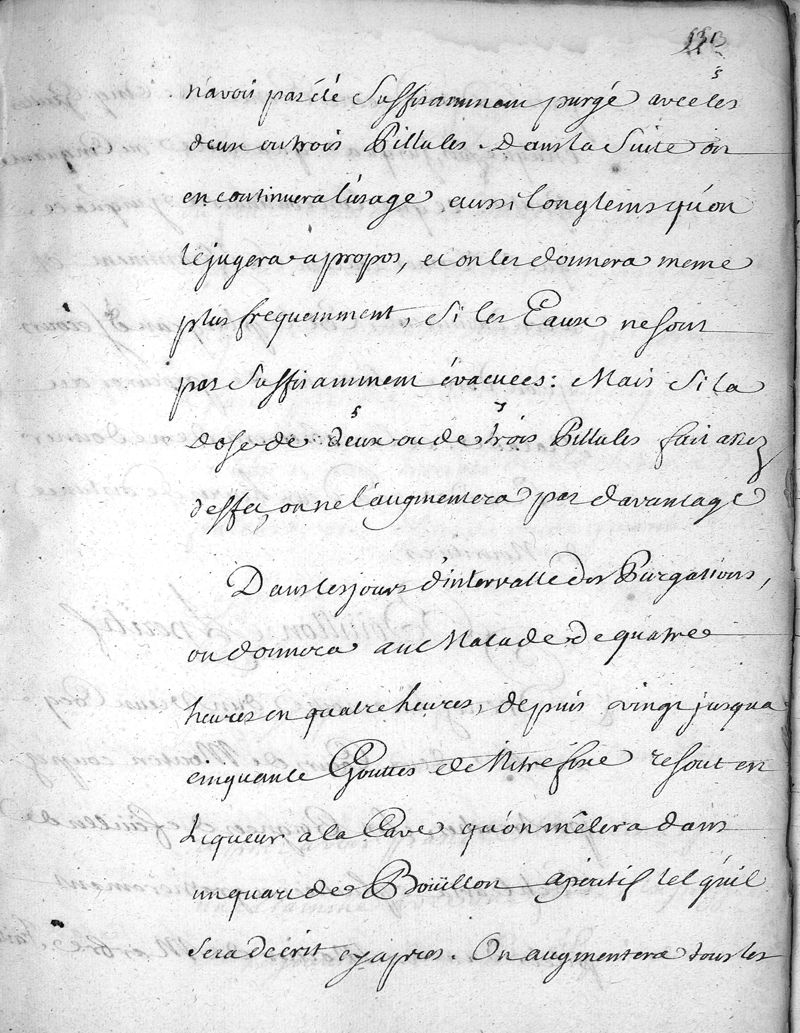 n'avoit pas été Suffisamment purgé avec les
deux ou trois Pillules. dans la Suite on
en continuera l'usage aussi longtems qu'on
le jugera a propos, et on les donnera meme
plus frequemment, Si les Eaux ne sont
pas Suffisamment évacuées: Mais Si la
dose de deux ou de trois Pillules fait assez
d'effet, on ne l'augmentera pas davantage
Dans les jours d'intervalle des Purgations,
on donnera au Malade de quatre
heures en quatre heures, depuis vingt jusqu'a
cinquante Gouttes de Nitre fixe resout en
Liqueur a la Cave qu'on mêlera dans
un quart de Boüillon aperitif tel qu'il
Sera décrit cy apres. On augmentera tous les